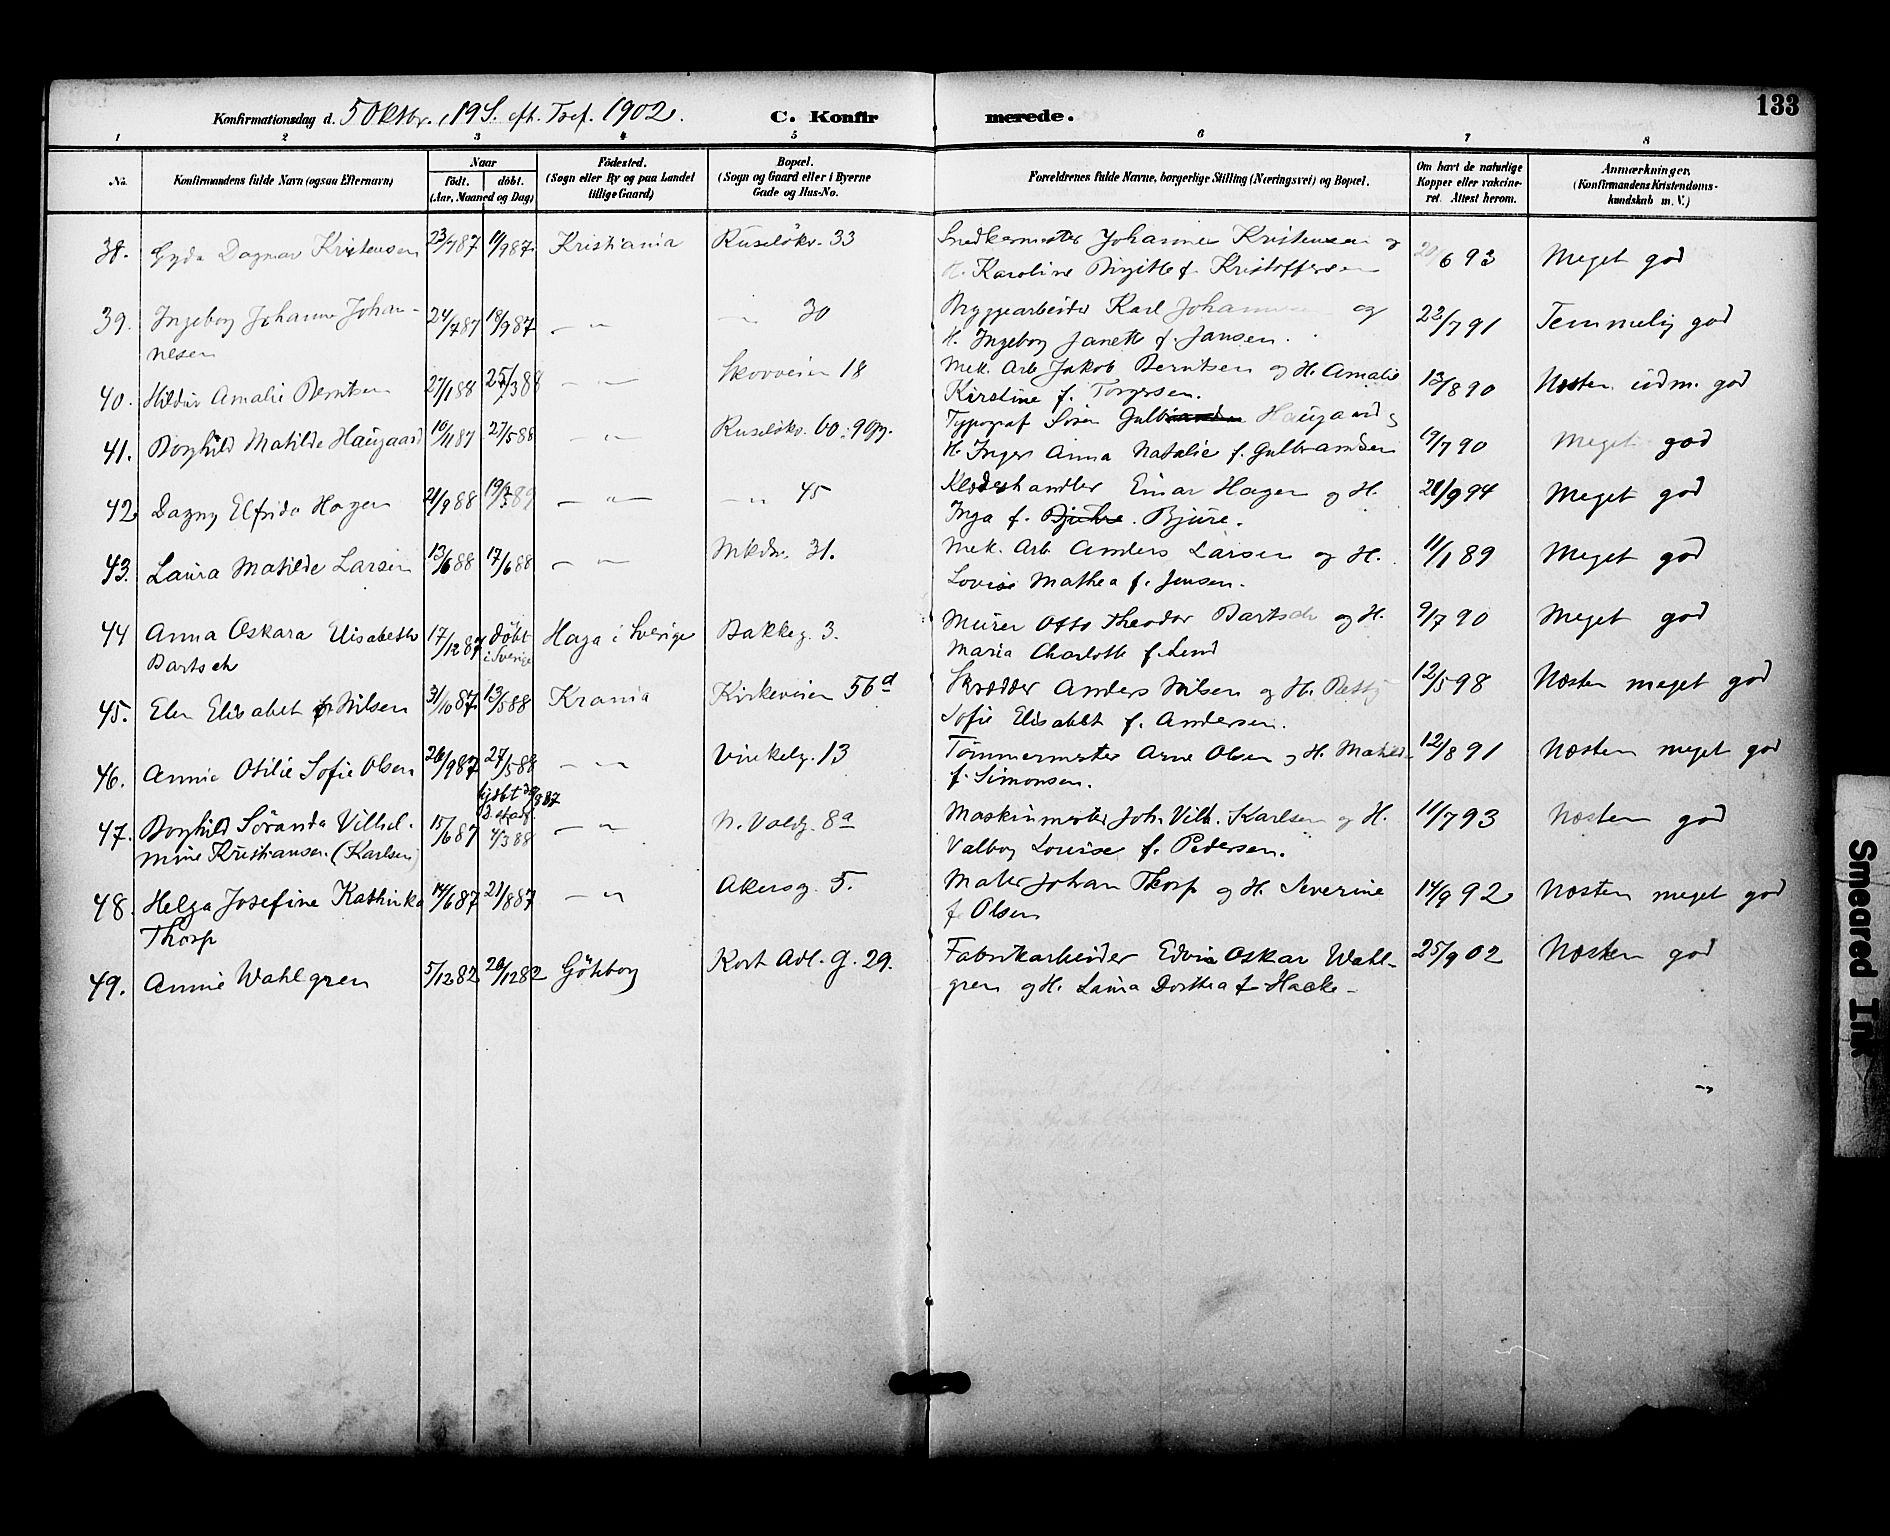 133
Konfirmationsdag d. 5 Oktbr., 19 S. eft. Tref. 1902.
C. Konfirmerede.
1 2 3 4 5 6 7 8
No. Konfirmandens fulde Navn (ogsaa Efternavn) Naar födt. döbt. (Aar, Maaned og Dag) Födested. (Sogn eller By og paa Landet tillige Gaard) Bopæl. (Sogn og Gaard eller i Byerne Gade og Hus-No. Forældrenes fulde Navne, borgerlige Stilling (Næringsvei) og Bopæl. Om havt de naturlige Kopper eller vakcineret. Attest herom. Anmærkninger. (Konfirmandens Kristendomskundskab m. V.)
38. Gyda Dagmar Kristensen 23/787 11/987. Kristiania Ruselökv. 33 Snedkermester Johannes Kristensen og
H. Karoline Birgitte f. Kristoffersen 20/6 93 Meget god
39. Ingeborg Johanne Johan-
nesen 24/787 18/987 — " — — " 30 Bryggearbeider Karl Johannesen og
H. Ingeborg Janette f. Jansen. 22/791 Temmelig god
40. Hildur Amalie Berntsen 27/188 25/388 — " — Skovveien 18 Mek. Arb. Jakob Berntsen og H. Amalie
Kirstine f. Torgersen. 13/890 Næsten udm. god
41. Borghild Matilde Haugaard 10/1187 27/588 — " — Ruselökv. 60. Typograf Sören Haugaard &
H. Inger Anna Natalie f. Gulbrandsen 19/790 Meget god
42. Dagny Elfrida Hagen 21/988 19/389 — " — — " 45 Klædeshandler Einar Hagen og H.
Inga f. Bjuhre. Bjure. 21/994 Meget god
43. Laura Matilde Larsen 13/688 17/688 — " — Mkdv. 31. Mek. Arb. Anders Larsen og H.
Lovise Mathea f. Jensen. 11/189 Meget god
44 Anna Oskara Elisabeth
Bartsch 17/1287 döbt
i Sverige Haga i Sverige Bakkeg. 3. Murer Otto Theodor Bartsch og H.
Maria Charlotte f. Lind 9/790 Meget god
45. Elen Elisabet Nilsen 31/1087. 13/588 Krania Kirkeveien 56d Skrædder Anders Nilsen og H. Betsy
Sofie Elisabet f. Andersen. 12/598 Næsten meget god
46. Annie Otilie Sofie Olsen 26/987 27/588 — " — Vinkelg. 13 Tömmermester Arne Olsen og H. Matilde
f. Simonsen. 12/891 Næsten meget god
47. Borghild Söranda Vilhel-
mine Kristiansen (Karlsen) 15/687 hjdbt
4/388 — " — N. Voldg. 8a Maskinmester Joh. Vilh. Karlsen og H.
Valborg Louise f. Pedersen. 11/793 Næsten god
48. Helga Josefine Kathinka
Thorp 14/687 21/887 — " Akersg. 5. Maler Johan Thorp og H. Severine
f. Olsen 14/992 Næsten meget god
49. Annie Wahlgren 5/1282 26/1282 Göteborg Kort Adl. G. 29. Fabrikarbeider Edvin Oskar Wahl-
gren og H. Laura Dorthea f. Hacke - 25/902 Næsten god
Smeared Ink